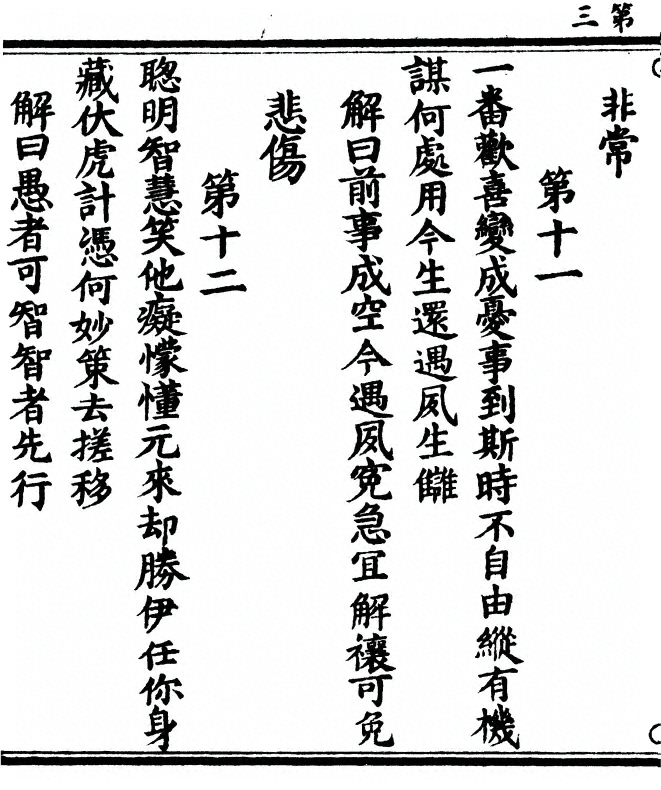 第三
非常
第十一
一番歡喜變成憂事到斯時不自由縱有機
謀何處用今生還遇夙生讎
解曰前事成空今遇夙寃急冝解禳可免
悲傷
第十二
聦明智慧笑他癡懞懂元來却勝伊任你身
藏伏虎計憑何妙策去搓移
解曰愚者可智智者先行